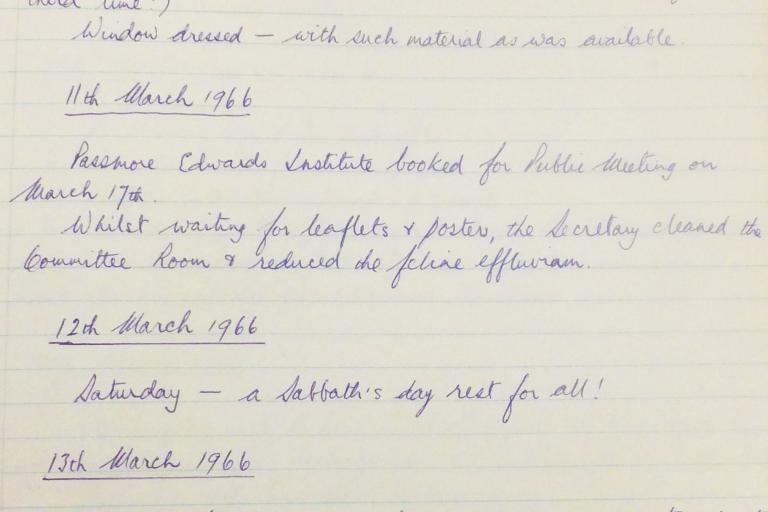 third time!)
Window dressed — with such material as was available.
11th March 1966
Passmore Edwards Institute booked for Public Meeting on
March 17th.
Whilst waiting for leaflets & poster, the Secretary cleaned the
Committee Room & reduced the feline effluviam.
12th March 1966
Saturday — a Sabbath's day rest for all!
13th March 1966